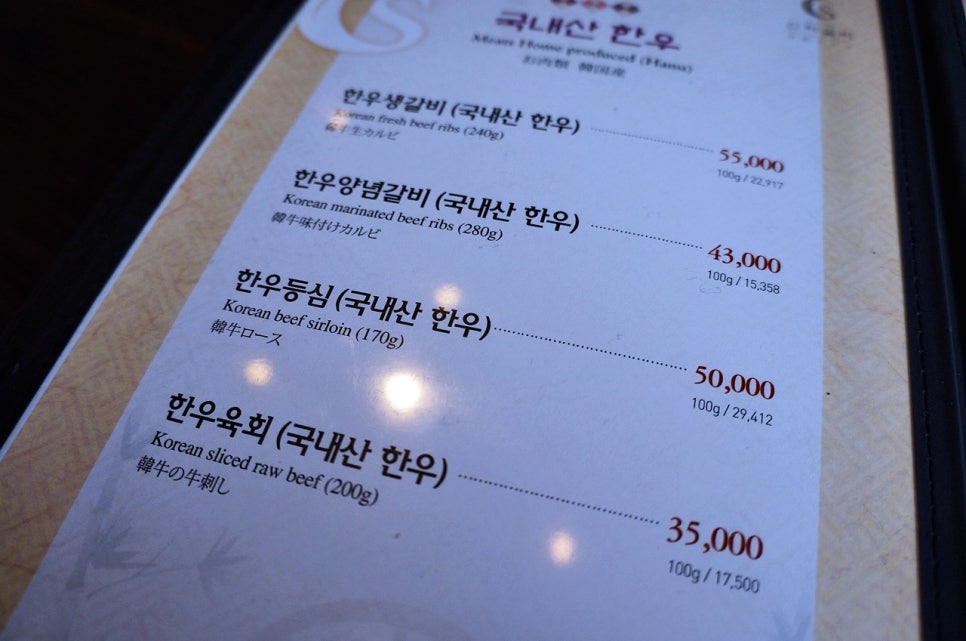 국내산 한우
Meats Home produced (Hanu)
お肉類 韓国産
한우생갈비 (국내산 한우) 55,000
Korean fresh beef ribs (240g) 100g / 22,917
韓牛生カルビ
한우양념갈비 (국내산 한우) 43,000
Korean marinated beef ribs (280g) 100g / 15,358
韓牛味付けカルビ
한우등심 (국내산 한우) 50,000
Korean beef sirloin (170g) 100g / 29,412
韓牛ロース
한우육회 (국내산 한우) 35,000
Korean sliced raw beef (200g) 100g / 17,500
韓牛の牛刺し